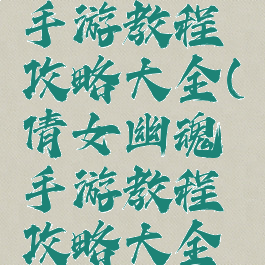 手游教程
攻略大全(
倩女幽魂
手游教程
攻略大全